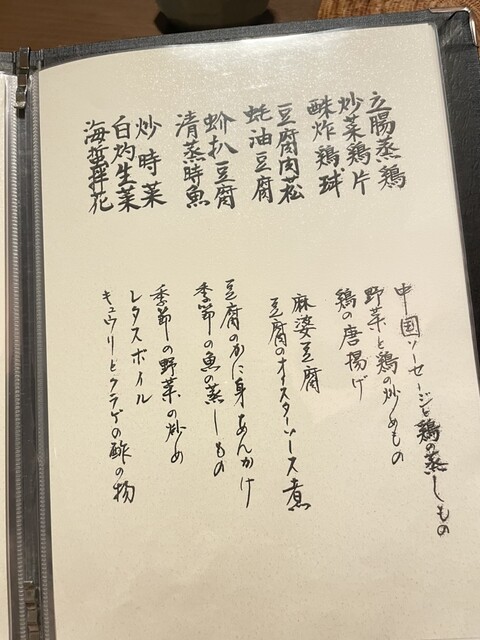 立腸蒸鶏
炒菜鶏片
酥炸鶏球
豆腐肉菘
蚝油豆腐
蚧扒豆腐
清蒸時魚
炒時菜
白灼生菜
海蜇拌花
中国ソーセージと鶏の蒸しもの
野菜と鶏の炒めもの
鶏の唐揚げ
麻婆豆腐
豆腐のオイスターソース煮
豆腐のかに身あんかけ
季節の魚の蒸しもの
季節の野菜の炒め
レタスボイル
キュウリとクラゲの酢の物